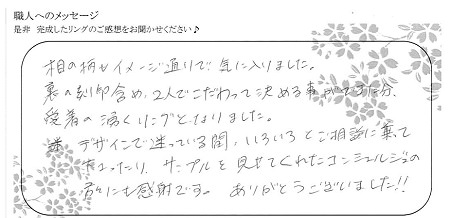 職人へのメッセージ
是非 完成したリングのご感想をお聞かせください♪
桜の柄もイメージ通りで気に入りました。
裏の刻印含め、2人でこだわって決める事ができた分、
愛着の湧くリングとなりました。
デザインで迷っている間、いろいろとご相談に乗って
下さったり、サンプルを見せてくれたコンシェルジュの
方々にも感謝です。 ありがとうございました!!